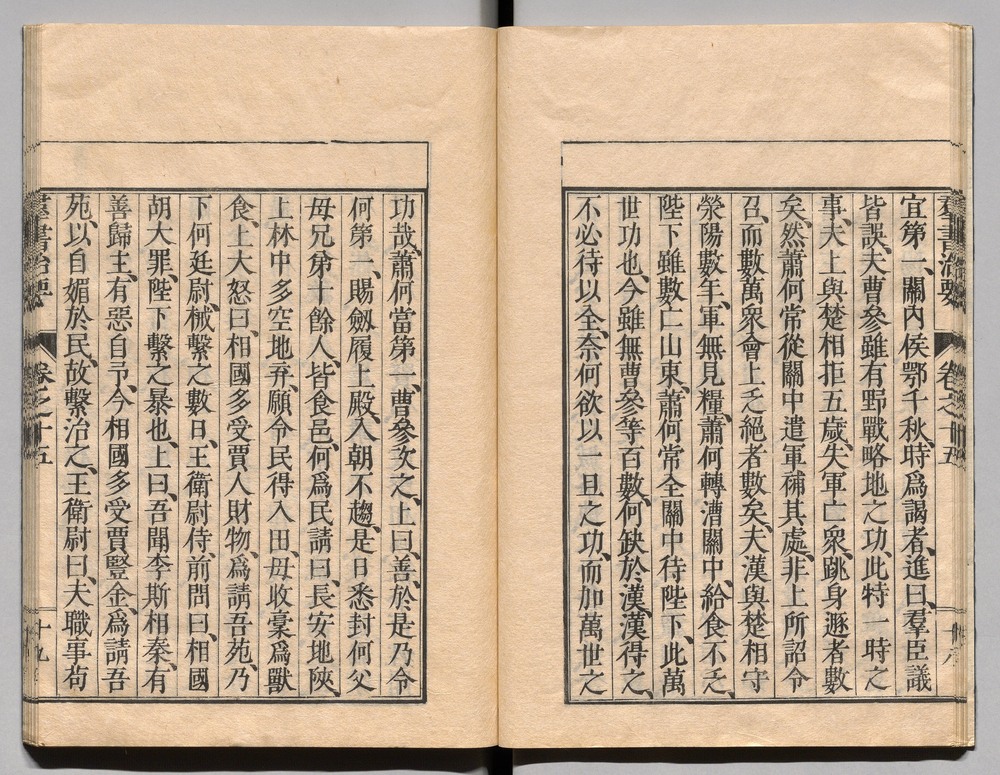 羣書治要 卷之十五 十八
宜第一、關內侯鄂千秋、時爲謁者、進曰、羣臣議
皆誤、夫曹參雖有野戰略地之功、此特一時之
事、夫上與楚相拒五歲、失軍亡衆、跳身遯者數
矣、然蕭何常從關中遣軍補其處、非上所詔令
召、而數萬衆會上乏絕者數矣、夫漢與楚相守
滎陽數年、軍無見糧、蕭何轉漕關中、給食不乏、
陛下雖數亡山東、蕭何常全關中待陛下、此萬
世功也、今雖無曹參等百數、何缺於漢、漢得之、
不必待以全、奈何欲以一旦之功、而加萬世之
功哉、蕭何當第一、曹參次之、上曰、善、於是乃令
何第一、賜劔履上殿、入朝不趨、是日悉封何父
母兄弟十餘人、皆食邑、何爲民請曰、長安地陿、
上林中多空地弃、願令民得入田、毋收稾爲獸
食、上大怒曰、相國多受賈人財物、爲請吾苑、乃
下何廷尉、械繫之數日、王衛尉侍、前問曰、相國
胡大罪、陛下繫之暴也、上曰、吾聞李斯相秦、有
善歸主、有惡自予、今相國多受賈豎金、爲請吾
苑、以自媚於民、故繫治之、王衛尉曰、夫職事苟
羣書治要 卷之十五 十九